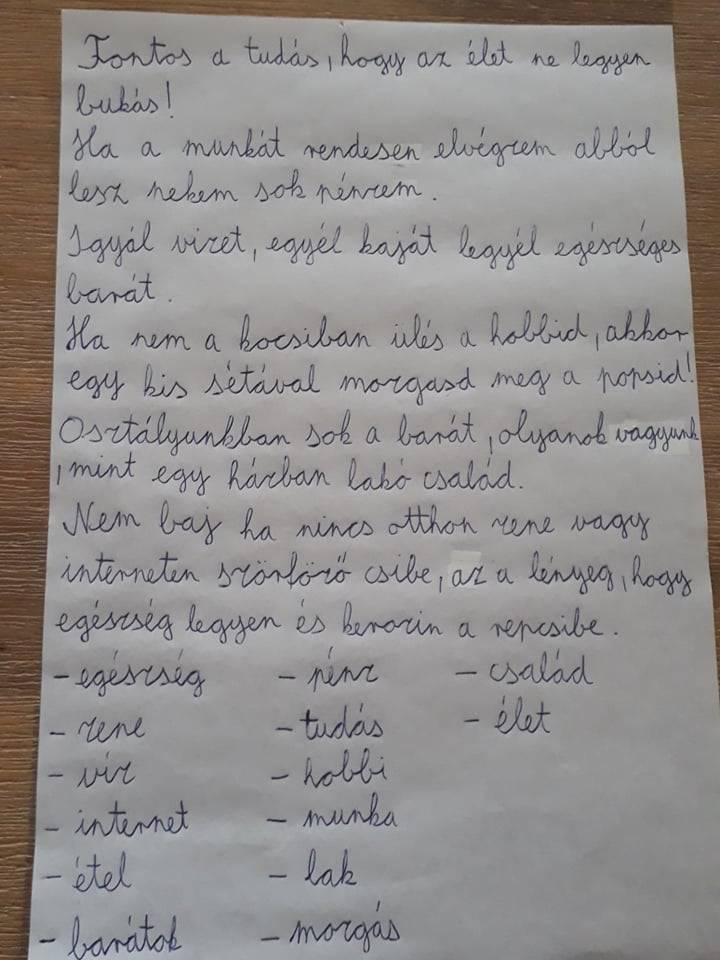 Fontos a tudás, hogy az élet ne legyen
bukás!
Ha a munkát rendesen elvégzem abból
lesz nekem sok pénzem.
Igyál vizet, egyél kaját legyél egészséges
barát.
Ha nem a kocsiban ülés a hobbid, akkor
egy kis sétával mozgasd meg a popsid!
Osztályunkban sok a barát, olyanok vagyunk
, mint egy házban lakó család.
Nem baj ha nincs otthon zene vagy
interneten szörföző csibe, az a lényeg, hogy
egészség legyen és kerozin a repcsibe.
- egészség - pénz - család
- zene - tudás - élet
- víz - hobbi
- internet - munka
- étel - lak
- barátok - mozgás